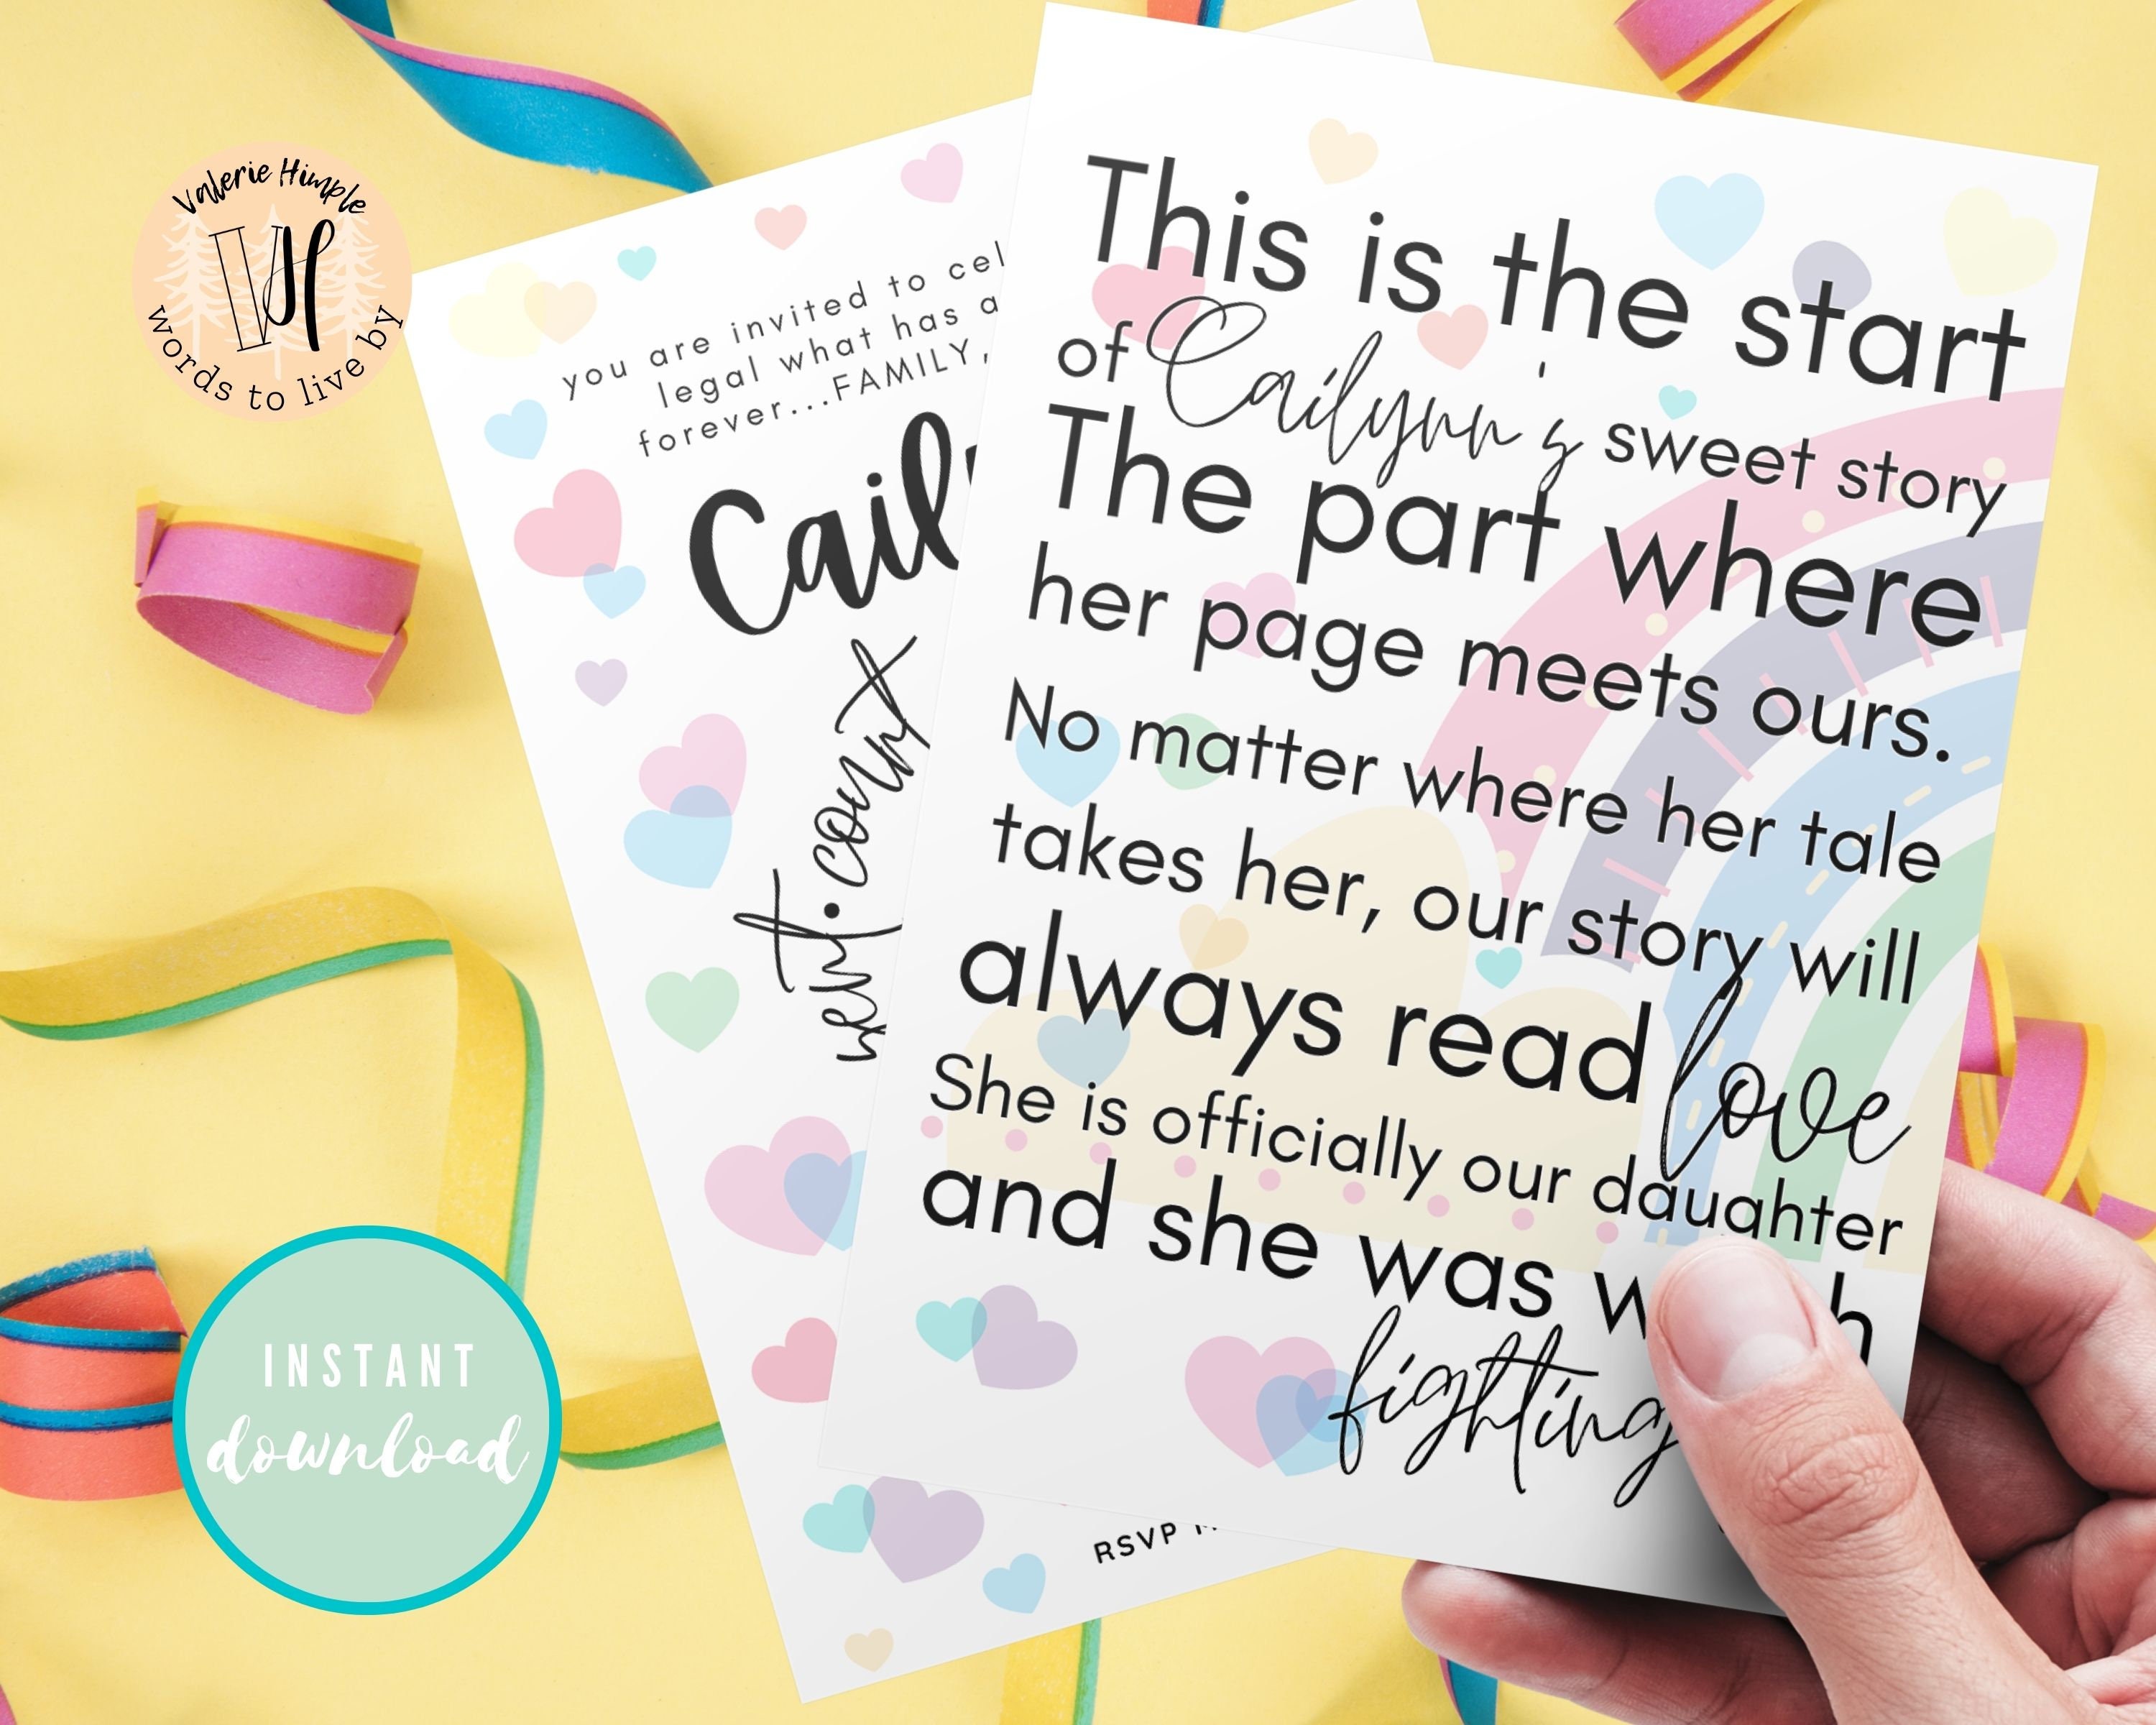 Valerie Himple
VH
words to live by
you are invited to cel
legal what has a
forever...FAMILY,
Cail
court
RSVP
INSTANT
download
This is the start
of Cailynn's sweet story
The part where
her page meets ours.
No matter where her tale
takes her, our story will
always read love
She is officially our daughter
and she was
fighting